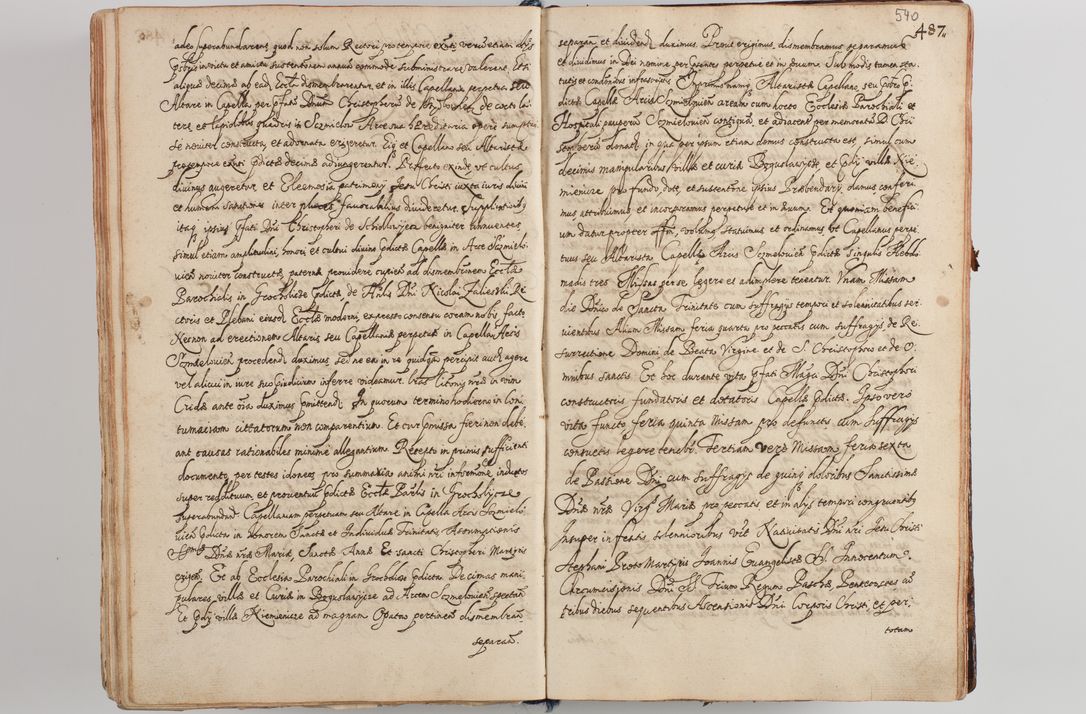 adeo superabundarent, quod non solum Rectori pro tempore exnti verum etiam alys
pbris in victu et amictu sustentationem annuam commode subministrare valerent. Et si
aliquae decimae ab ead Ecclia dismembrarentur, et in illis Capellania perpetua seu
Altare in Capella per pfatu Dnum Christopherum de
tere, et lapidolis quadris in Szmielow Arce sua haereditaria opere sumptuo
se noviter constructa et adornata erigeretur. Eiq et Capellano seu Altaristae
pro tempore exnti pdictae decimae adiungerentur. Profecto exinde et cultus
divinus augeretur, et Eleemosia patrimony Jesu Christi iuxta iuris divini
et humani sanctiones inter plures favorabilius divideretur. Supplicationib
itaq ipsius pfati Dni Christopheri de benigniter annuentes
simul etiam amplitudini, honori et cultui divino pdictae Capellae in Arce Szmielo
vien noviter constructae, paterne providere cupien ad dismembrationem Eccliae
Parochialis in Grocholicze pdictae, de Hnblis Dni Nicolai Zaleski Re
ctoris et Plebani eiusd Eccliae moderni, expresso consensu coram nobis facto,
Necnon ad erectionem Altaris seu Capellaniae perpetuae in Capella Arcis
Szmielovien procedend duximus, sed ne ea in re quidqua percipiti aut agere
vel alicui in iure suo pudicium inferre videamur. Lras Citonis nrae in vim
Cridae ante ora duximus pmittend. In quorum termino hodierno in Con
tumaciam cittatorum non comparentium. Et cur pmissa fieri non debe
ant causas rationabiles minime allegantium. Recepto in primis sufficienti
documento per testes idoneos pro summaria animi nri informone inductos
super redditum et proventuu pdictae Eccliae Paulis in Grocholycze
superabundan Capellaniam perpetuam seu Altare in Capella Arcis Szmielo
vien pdictae in Honorem Sanctae et Individuae Trinitatis, Assumptionis
Dnae nrae Mariae, Sanctae Annae Et sancti Christopheri Martyris
erigen. Et ab Ecclesia Parochiali in Grocholicze pdicta Decimas mani
pulares villae et Curiae in Boguslawycze ad Arcem Szmielovien spectan
Et Coly villae Niemienicze ad magnam Opatow pertinen dismembran
separan.
540
487
separan et dividend duximus. Prout erigimus, dismembramus separamus
et dividimus in Dei nomine per psentes perpetue et in aevum. Sub modis tamen sta
tutis et condonibus infrascriptis. Altaristae Capellano seu pbro p
dictae Capellae Arcis Szmielovien aream cum horto Ecclesiae Parochiali et
Hospituli pauperum Szmielovien contigua, et adiacen per memoratu D Chri
stopheru donatu, in qua per ipsum etiam domus constructa est, simul cum
decimis manipularibus villae et curiae Boguslawycze, et Coly villae Nie
mienicze pro fundo, dote, et sustentone ipsius Praebendary, damus conferi
mus attribuimus et incorporamus perpetue et in aevum. Et quoniam benefici
um datur propter offm, volumus statuimus et ordinamus ut Capellanus perpe
tuus seu Altarista Capellae Arcis Szmielovien pdictae singulis Hebdo
madis tres Missas per se legere et adimplere teneatur. Unam Missam
die Dnico de Sancta Trinitate cum suffragys tempori et solennitatibus ser
vientibus. Aliam Missam feria quarta pro peccatis cum suffragys de Re
surrectione Domini, de Beata Virgine et de S Christophero et de O
mnibus sanctis. Et hoc durante vita pfati Magci Dni Christopheri
constructoris fundatoris et dotatoris Capellae pdictae. Ipso vero
vita functo feria quinta Missam pro defunctis cum suffragys
consuetis legere tenebi. Tertiam vero Missam feria sexta
de Passione Dni cum suffragys de quinq doloribus Sanctissimae
Dnae nrae Virg Mariae pro peccatis et in alys tempori congruentib
Insuper in festis solennioribus ut Nativitatis Dni nri Jesu Christi
Stephani Proto Martyris Joannis Evangelistae SS. Innocentum
Circumcisionis Dni SS. Trium Regum Paschae, Pentecostes ac
tribus diebus sequentibus Ascensionis Dni Corporis Christi, et per
totam